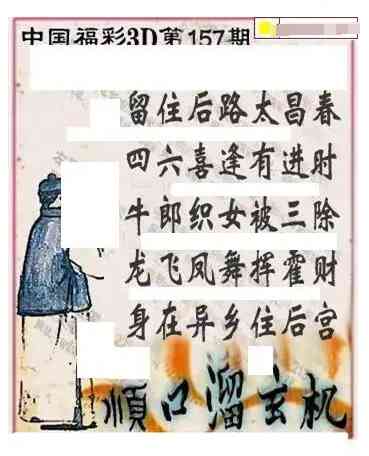 中国福彩3D第157期
留住后路太昌春
四六喜逢有进时
牛郎织女被三除
龙飞凤舞挥霍财
身在异乡住后宫
顺口溜玄机